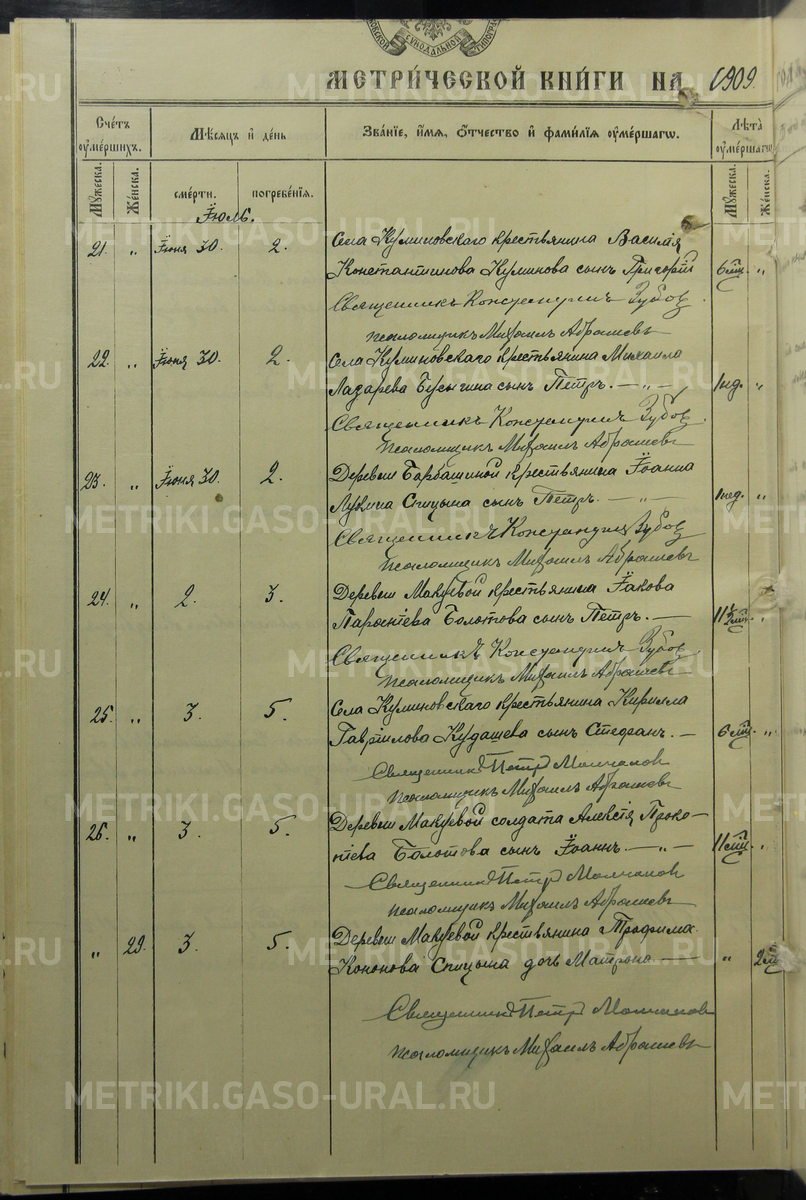 МЕТРИ́ЧЕСКОЙ КНИ́ГИ НА 1909
Сче́тъ оуме́ршихъ.
Мѣ́сяцъ и҆ де́нь
Зва́нїе, и҆́мя, ѻ҆́тчество и҆ фами́лїя оуме́ршагѡ.
Лѣ́та̀ оуме́ршагѡ
Мꙋ́жеска.
Же́нска.
сме́рти.
погребе́нїя.
Мꙋ́жеска.
Же́нска.
Іюль.
21. „ Іюня 30. 2. Села Куминовскаго крестьянина Василія
Константинова Куминова сынъ Григорій 6 мц. „
Священникъ Константинъ Зубовъ.
псаломщикъ Михаилъ Абрашевъ
22. „ Іюня 30. 2. Села Куминовскаго крестьянина Михаила
Лазарева Бусыгина сынъ Петръ. — „ — 1 нед. „
Священникъ Константинъ Зубовъ.
Псаломщикъ Михаилъ Абрашевъ
23. „ Іюня 30. 2. Деревни Барбашиной крестьянина Іоанна
Лукина Спицына сынъ Петръ. — „ — 1 нед. „
Священникъ Константинъ Зубовъ
псаломщикъ Михаилъ Абрашевъ
24. „ 2. 3. Деревни Макуевой крестьянина Іакова
Болотова сынъ Петръ. — 11½ мц. „
Священникъ Константинъ Зубовъ.
Псаломщикъ Михаилъ Абрашевъ
25. „ 3. 5. Села Куминовскаго крестьянина Кирилла
Гавріилова Кудашева сынъ Стефанъ. — 6 мц. „
Священникъ Петръ Молчановъ
псаломщикъ Михаилъ Абрашевъ
26. „ 3. 5. Деревни Макуевой солдата Алексія Проко-
піева Болотова сынъ Іоаннъ. — „ — 11 мц. „
Священникъ Петръ Молчановъ
псаломщикъ Михаилъ Абрашевъ
„ 29. 3. 5. Деревни Макуевой крестьянина Трофима
Кононова Спицына дочь Матрона. — „ 2 мц
Священникъ Петръ Молчановъ
псаломщикъ Михаилъ Абрашевъ
METRIKI.GASO-URAL.RU